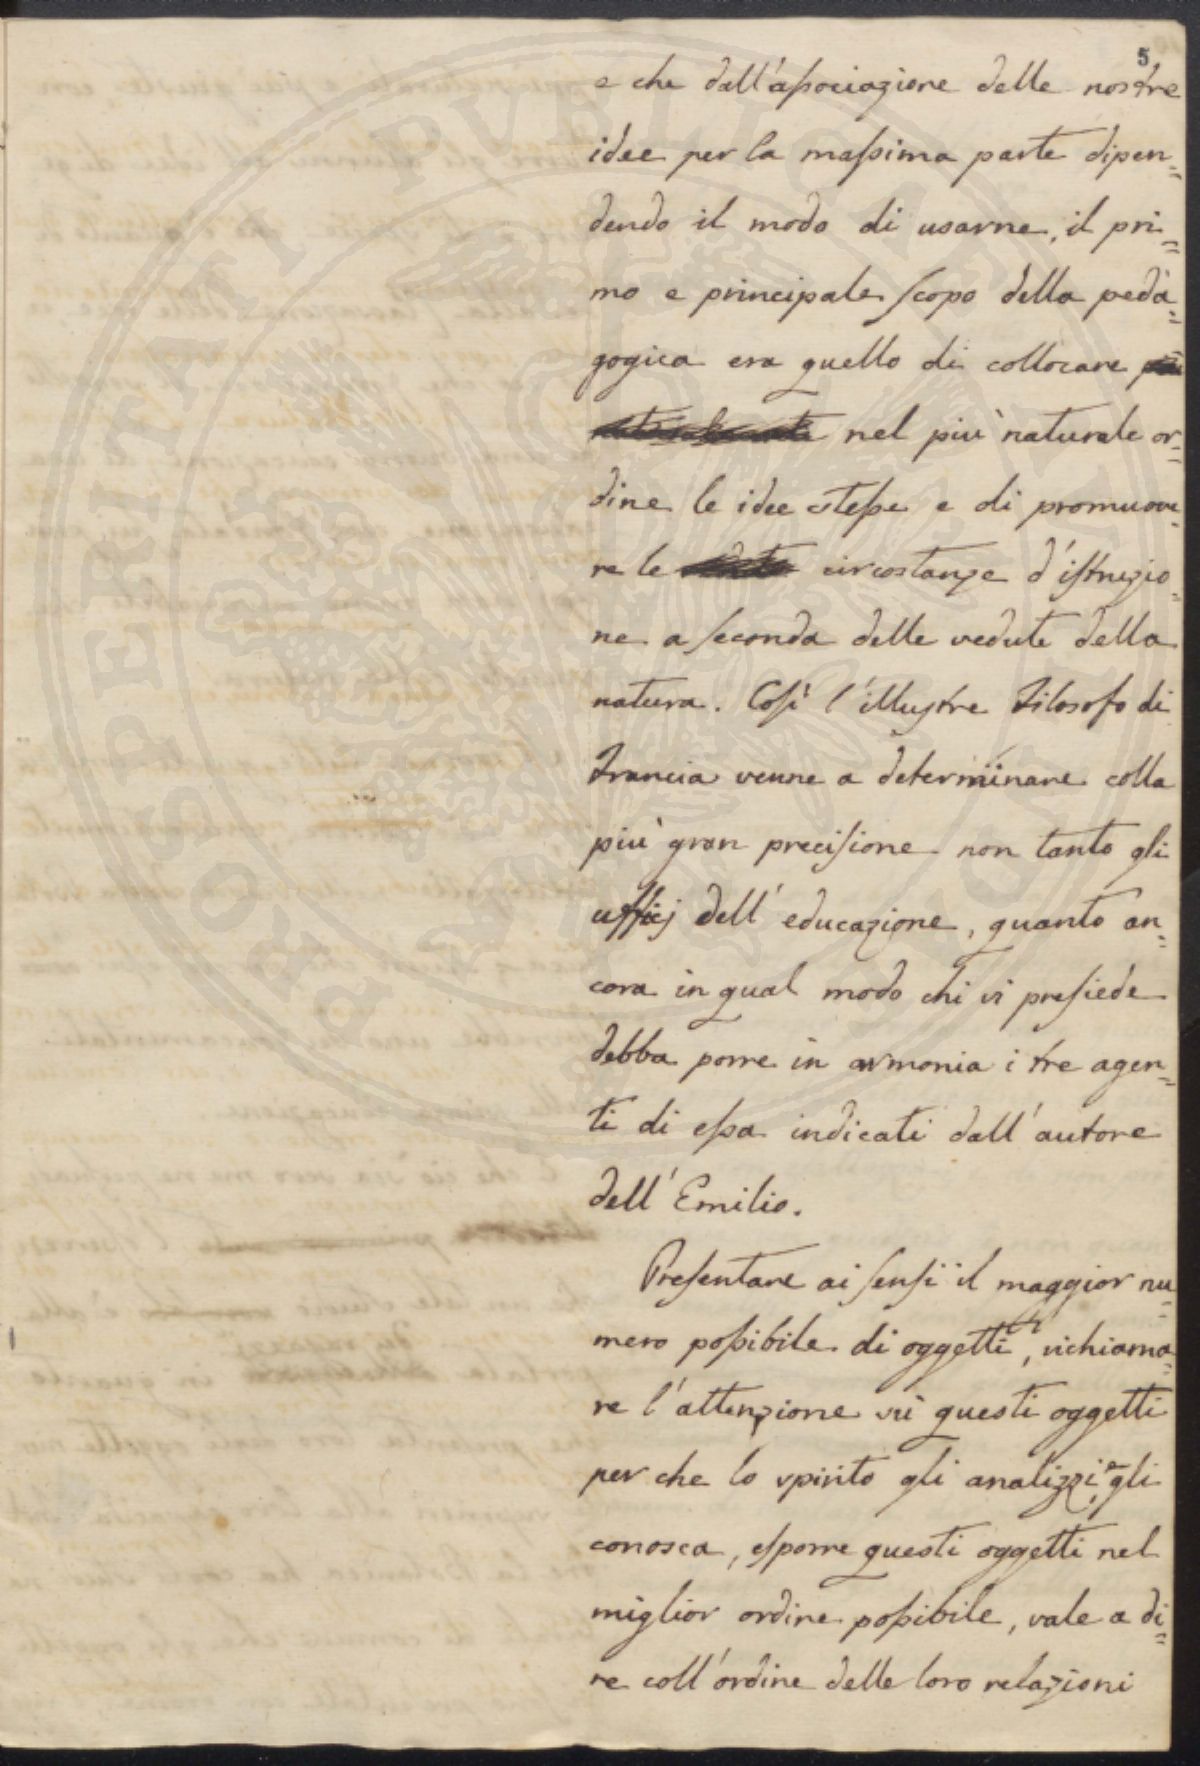 5
e che dall'associazione delle nostre
idee per la massima parte dipen=
dendo il modo di usarne, il pri=
mo e principale scopo della peda=
gogica era quello di collocare
nel più naturale or=
dine le idee stesse e di promuove=
re le circostanze d'istruzio=
ne a seconda delle vedute della
natura. Così l'illustre Filosofo di
Francia venne a determinare colla
più gran precisione non tanto gli
ufficj dell'educazione, quanto an=
cora in qual modo chi vi presiede
debba porre in armonia i tre agen=
ti di essa indicati dall'autore
dell'Emilio.
Presentare ai sensi il maggior nu=
mero possibile di oggetti, richiama=
re l'attenzione su questi oggetti
per che lo spirito gli analizzi, e gli
conosca, esporre questi oggetti nel
miglior ordine possibile, vale a di=
re coll'ordine delle loro relazioni
PROSPERITATI PUBLICAE